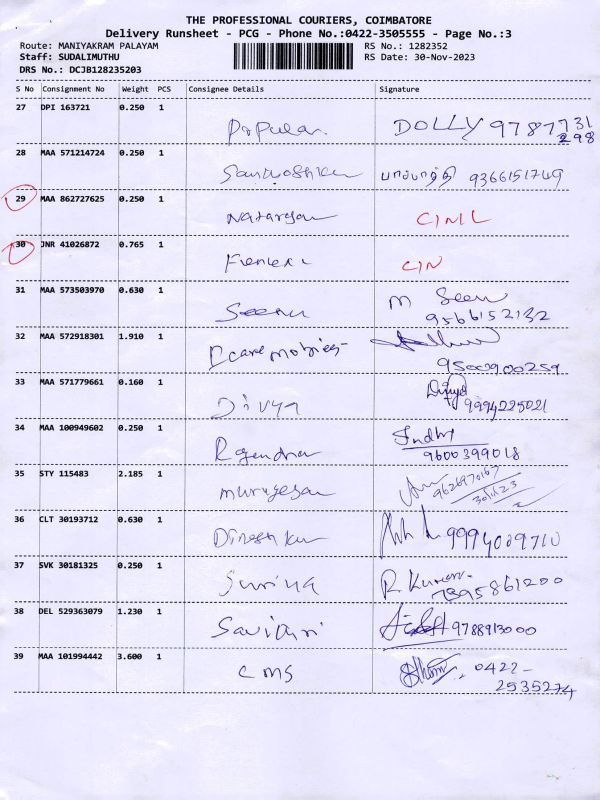 THE PROFESSIONAL COURIERS, COIMBATORE
Delivery Runsheet - PCG - Phone No.:0422-3505555 - Page No.:3
Route: MANIYAKRAM PALAYAM RS No.: 1282352
Staff: SUDALIMUTHU RS Date: 30-Nov-2023
DRS No.: DCJB128235203
S No Consignment No Weight PCS Consignee Details Signature
27 DPI 163721 0.250 1
Popular DOLLY 9787731
298
28 MAA 571214724 0.250 1
Santhoshku 9366151749
29 MAA 862727625 0.250 1
Natarajan CINL
30 JNR 41026872 0.765 1
CIN
31 MAA 573503970 0.630 1
Seenu M Seenu
9566152132
32 MAA 572918301 1.910 1
Dcare mobiles
9500900259
33 MAA 571779661 0.160 1
Divya Divya
9994225021
34 MAA 100949602 0.250 1
Rajendran Indhu
9600399018
35 STY 115483 2.185 1
murugesan 9626970167
30/11/23
36 CLT 30193712 0.630 1
Dineshku 9994009710
37 SVK 30181325 0.250 1
Suriya R. Kumar
7395861200
38 DEL 529363079 1.230 1
Savithri 9788913000
39 MAA 101994442 3.600 1
CMS 0422-
2535274